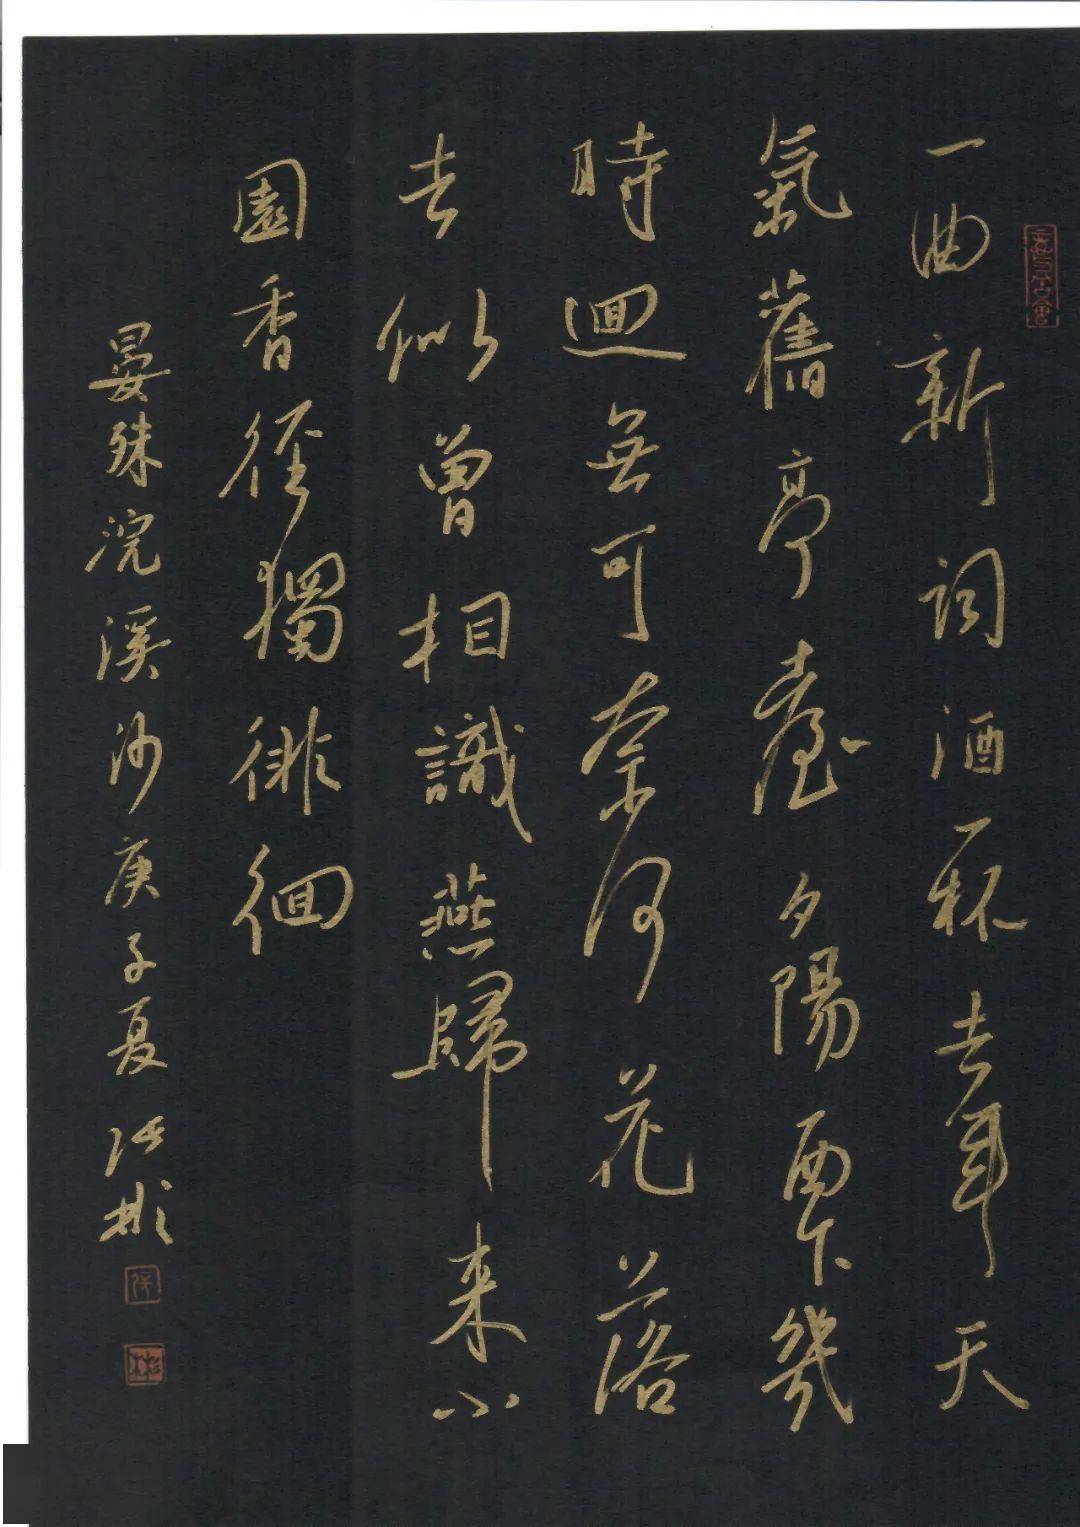 一曲新词酒一杯去年天
氣舊亭臺夕陽西下幾
時迴無可奈何花落
去似曾相識燕歸来小
園香徑獨徘徊
晏殊浣溪沙庚子夏 彬